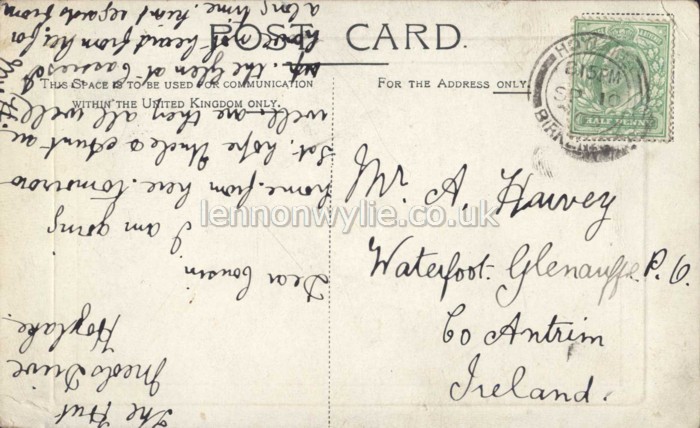 POST CARD.
THIS SPACE IS TO BE USED FOR COMMUNICATION
WITHIN THE UNITED KINGDOM ONLY.
FOR THE ADDRESS ONLY.
HOYL
8.15PM
10
BIRKEN
HALF PENNY
Mr. A. Harvey
Waterfoot. P. O.
Co Antrim
Ireland.
The Hut
Meols Drive
Hoylake.
Dear Cousin
I am going
home from here tomorrow
Sat, hope Uncle & Aunt are
well. are they all well
up the Glen at
have not heard from her for
a long time. kind regards from
lennonwylie.co.uk